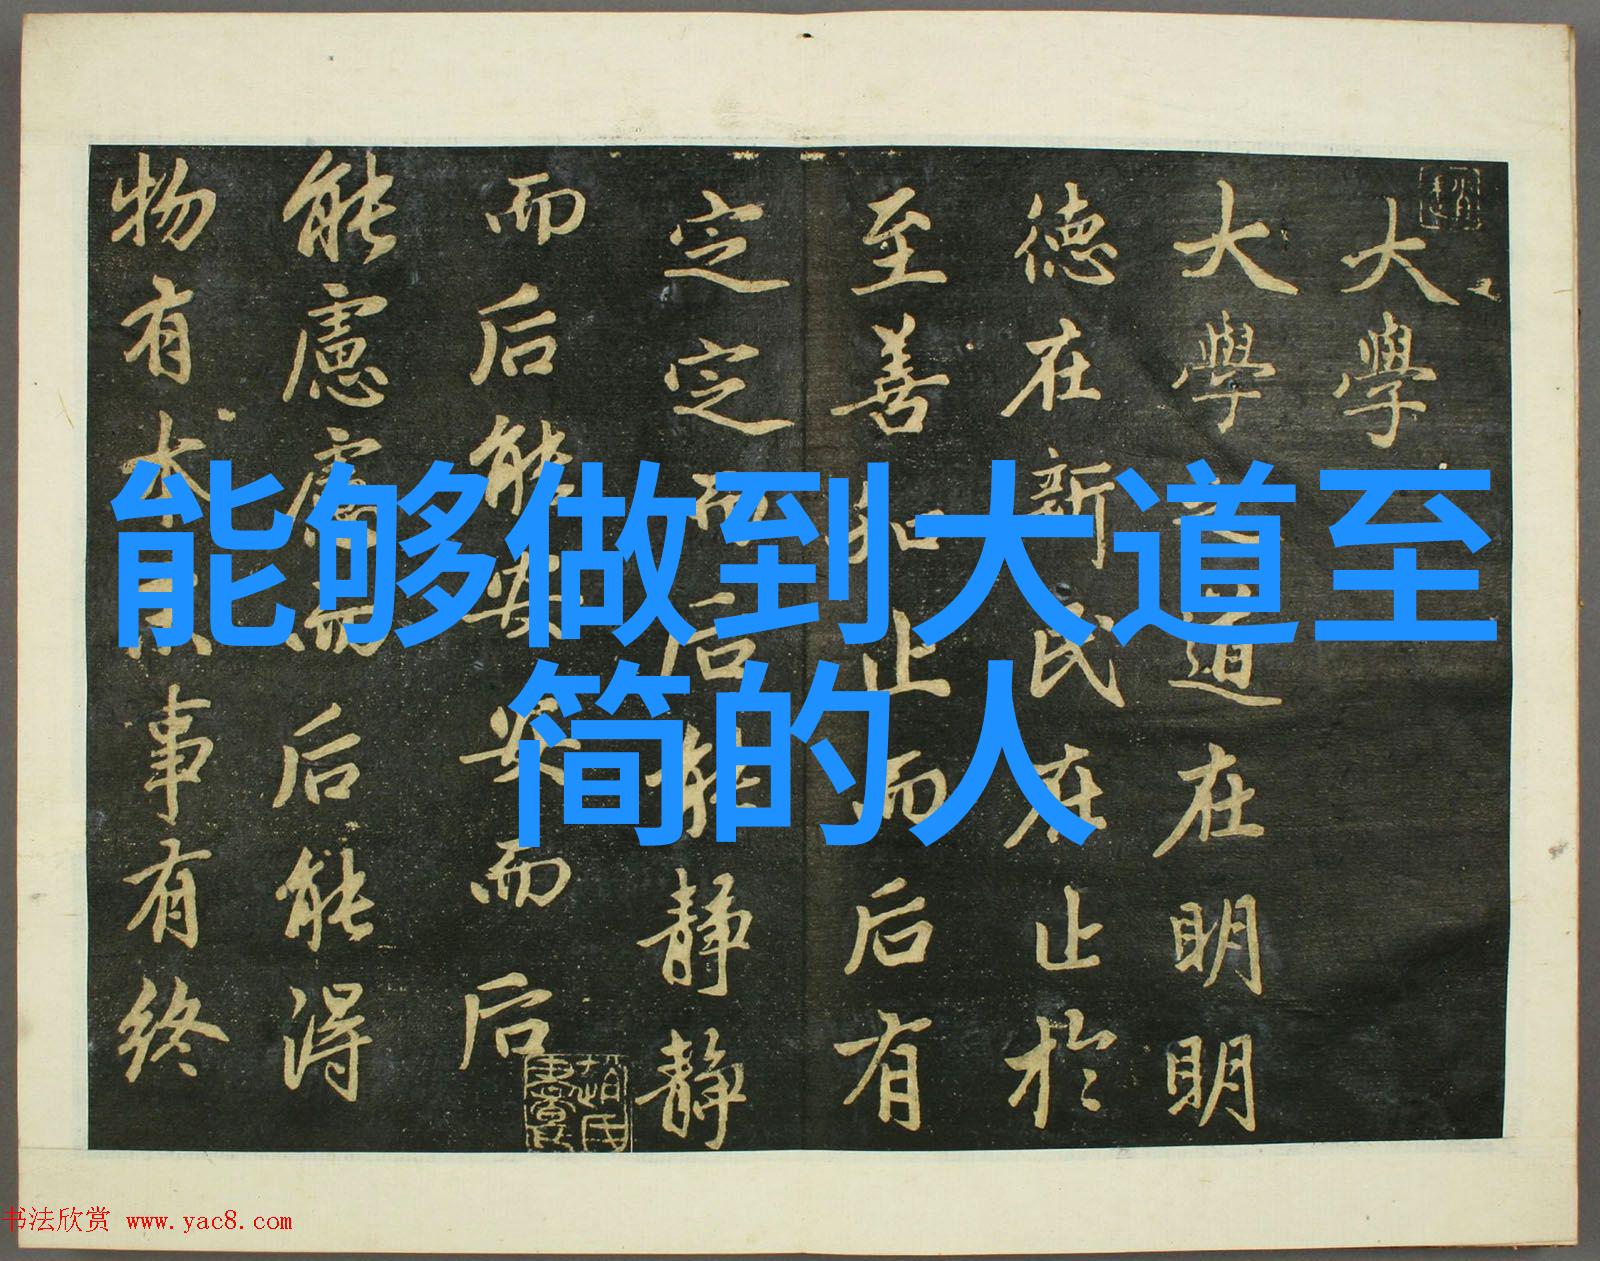 大學
大學之道在明明
德在新民在止於
至善知止而后有
定定而后能靜靜
而后能安安而后
能慮慮而后能得
物有本末事有終
能够做到大道至
简的人
书法欣赏 www.yac8.com